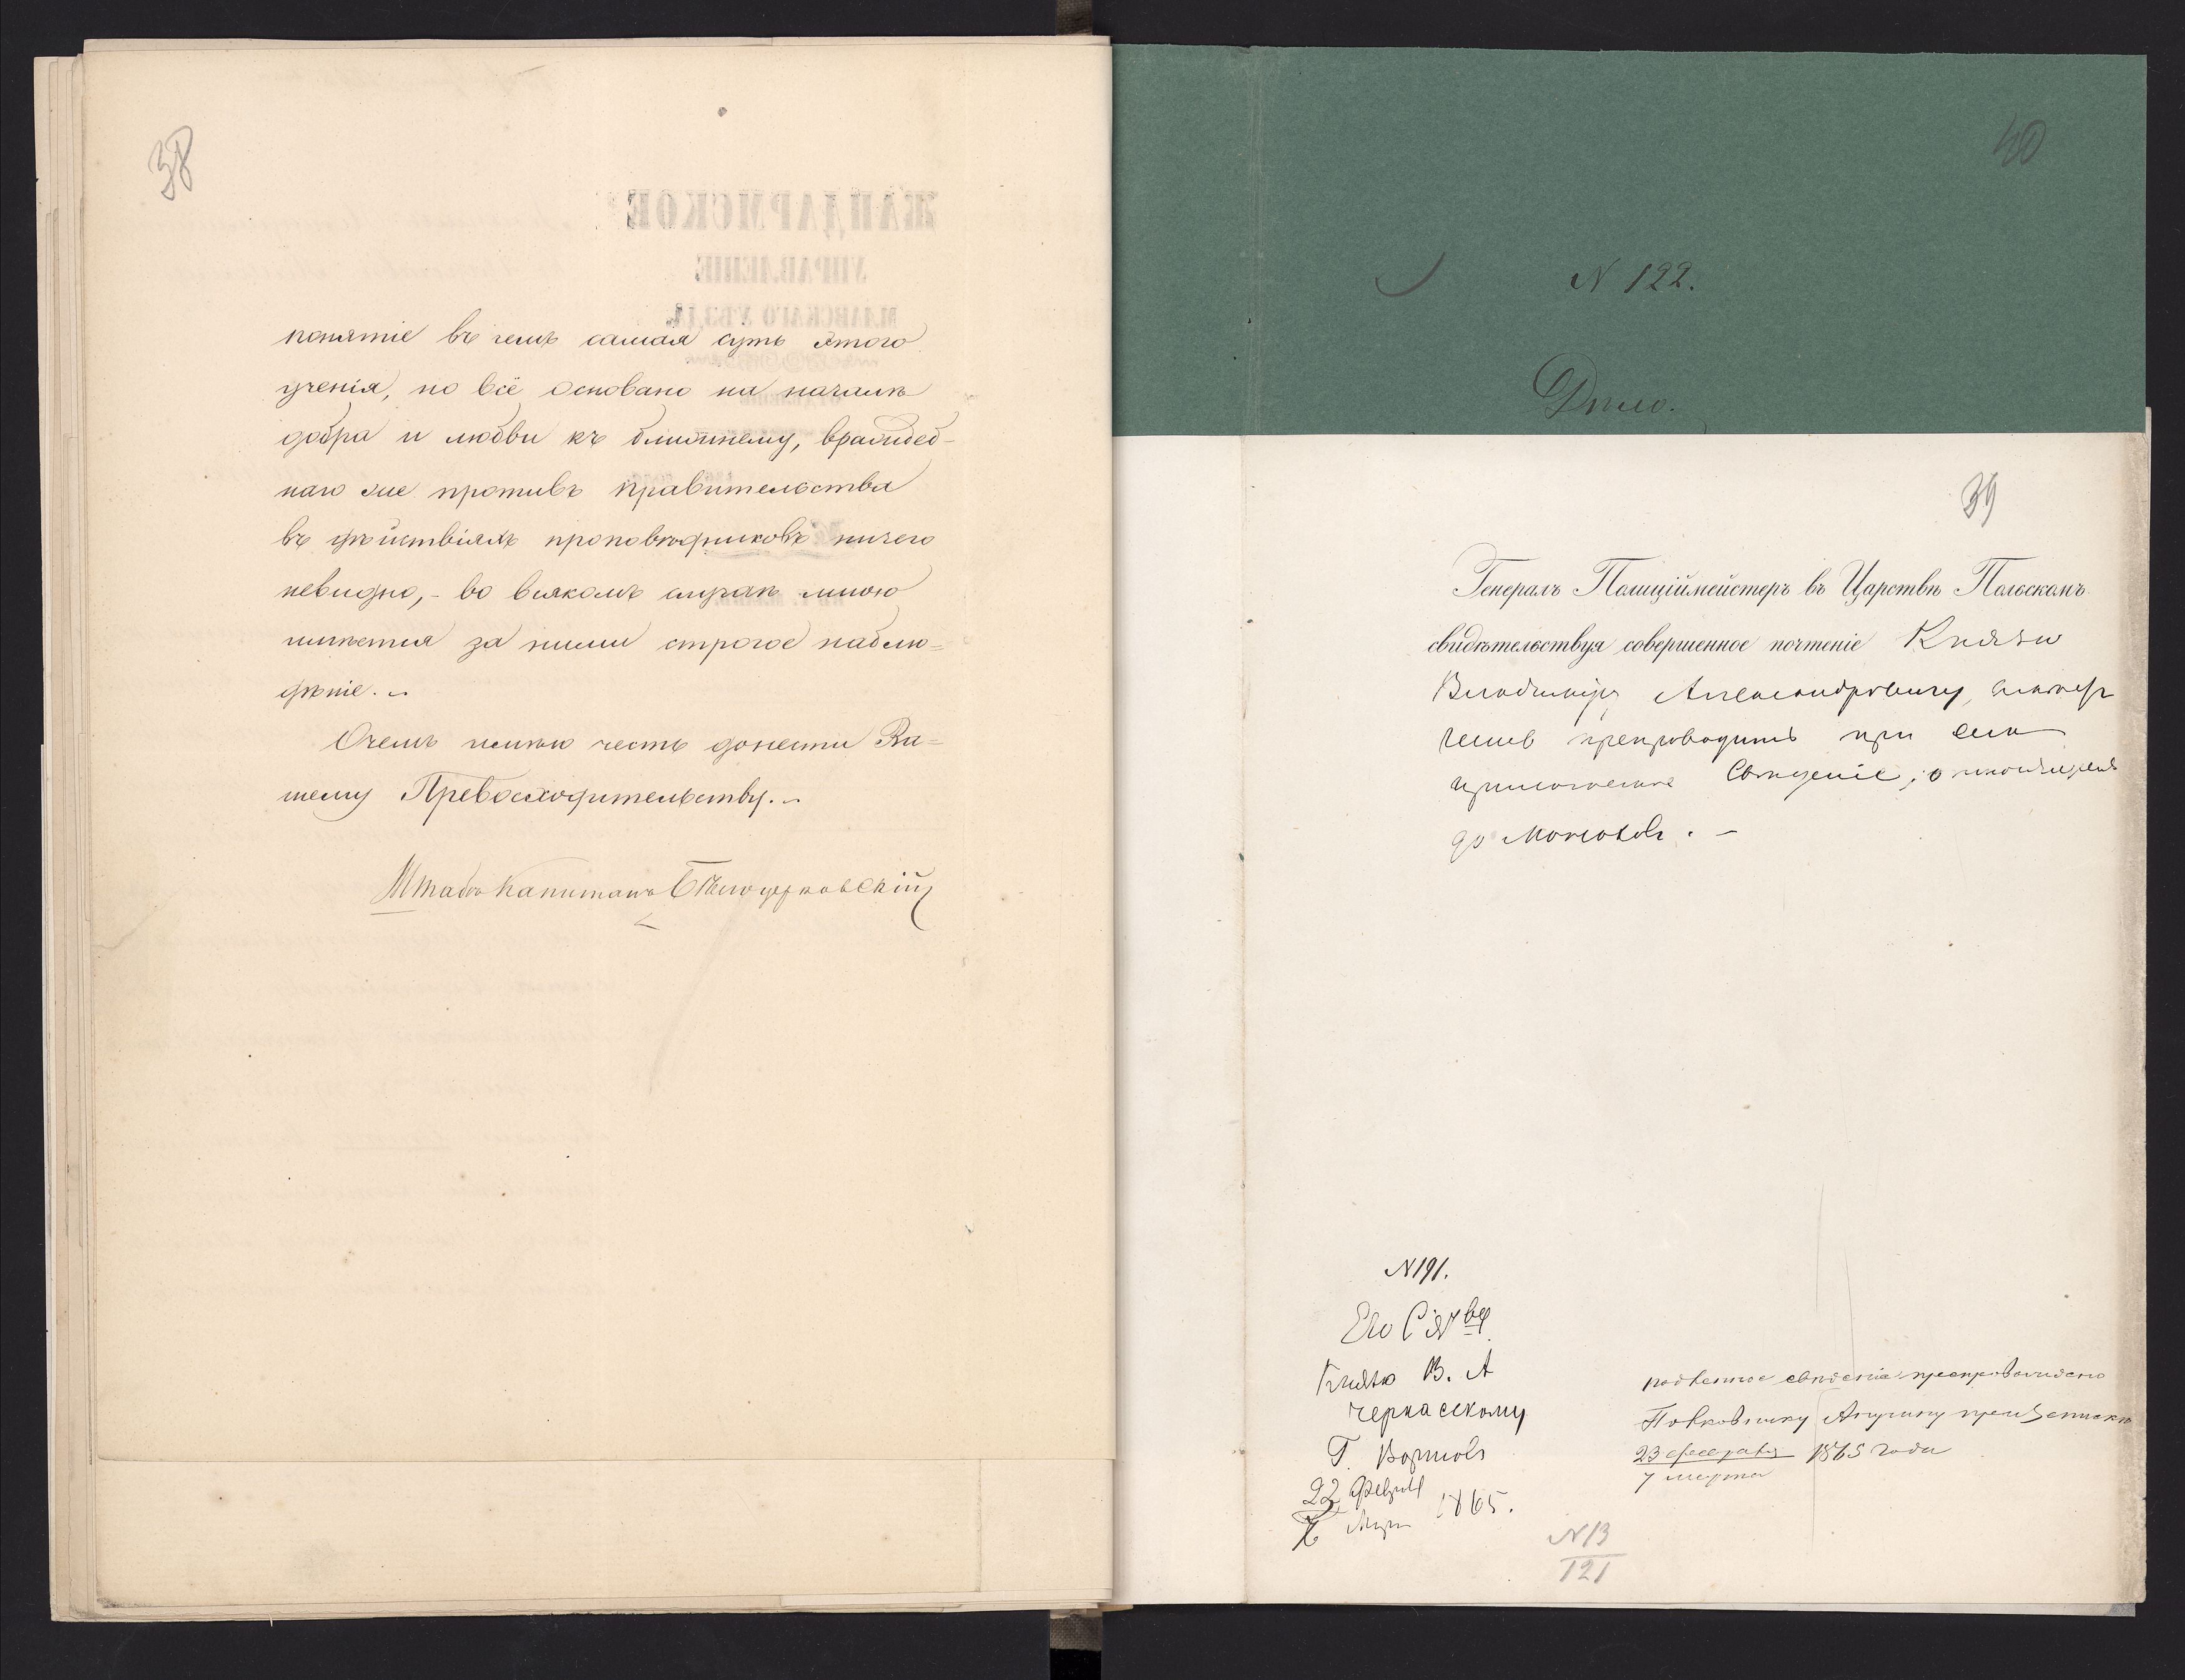 38
понятіе въ чемъ самая суть этого
ученія, но всё основано на началѣ
добра и любви къ ближнему, враждеб-
наго же противъ правительства
въ дѣйствіяхъ проповѣдниковъ ничего
невидно,- во всякомъ случаѣ мною
имѣется за ними строгое наблю=
дѣніе.
О чемъ имѣю честь донести Ва=
шему Превосходительству.
Штабсъ Капитанъ Бѣлоцерковскій
40
N 122.
Дѣло.
39
Генералъ Полиціймейстеръ въ Царствѣ Польскомъ
свидѣтельствуя совершенное почтеніе Князю
Владиміру Александровичу, имѣетъ
честь препроводить при семъ
приложенное Свѣдѣніе, относящееся
до
N 191.
Его Сія ву
Князю В. А
Черкасскому
22 Февр
6 Мар 1865.
свѣдѣніе препровождено
Полковнику Анучину при Запискѣ
23 февраля 1865 года
7 марта
N 13
121
ЖАНДАРМСКОЕ
УПРАВЛЕНІЕ
МЛАВСКАГО УѢЗДА